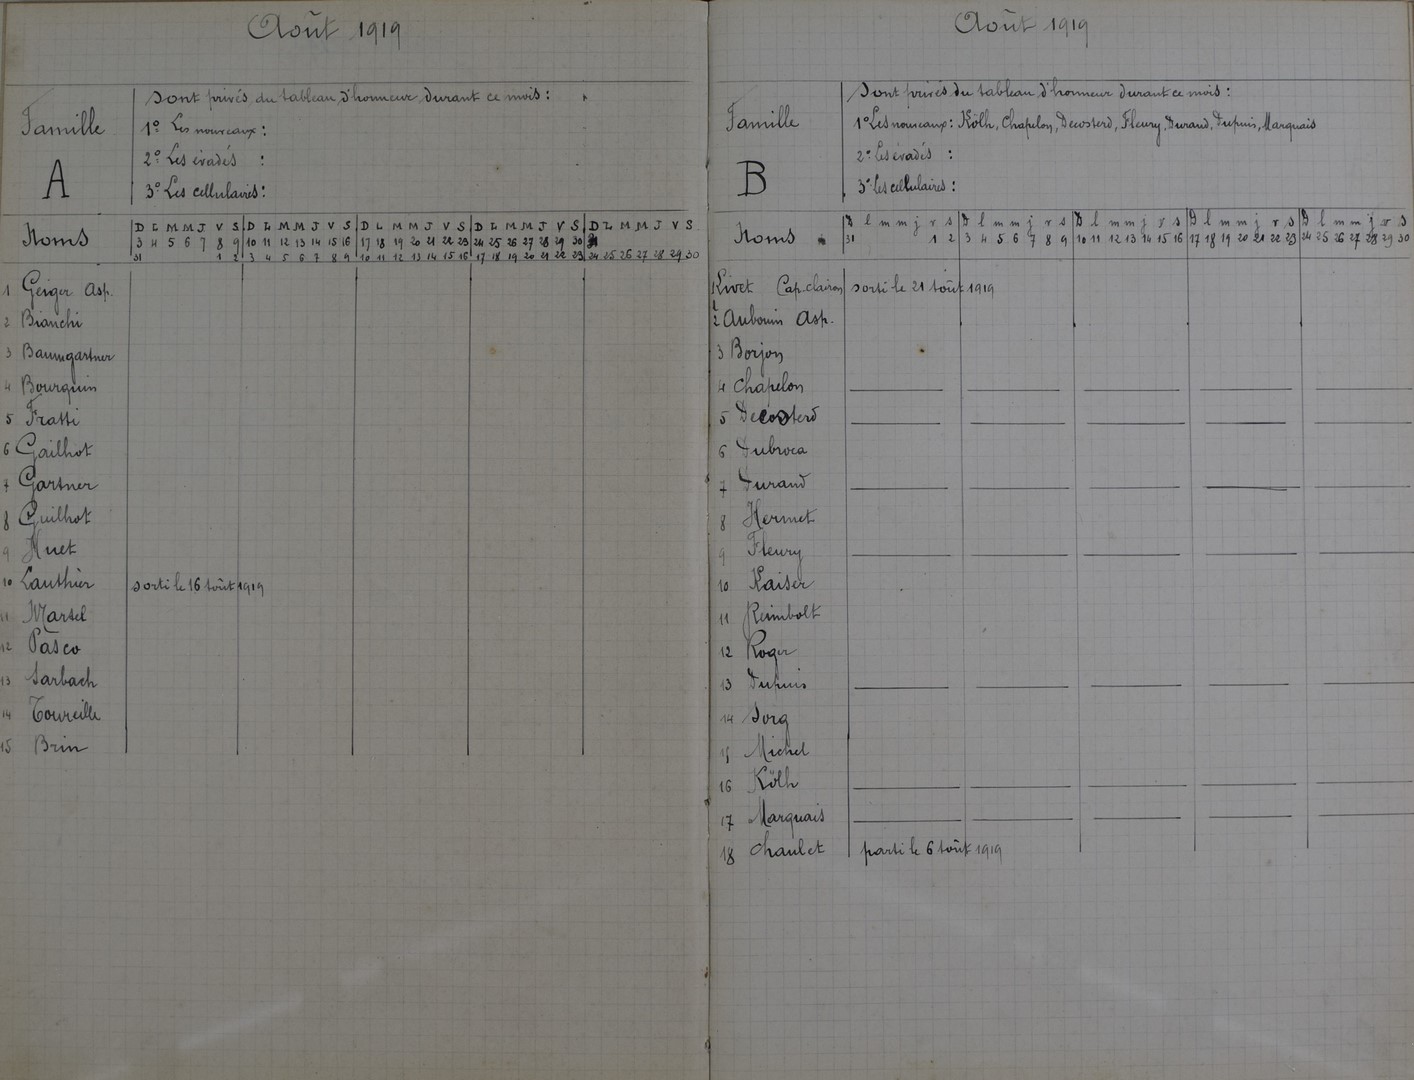 Août 1919
Famille
A
Sont privés du tableau d'honneur durant ce mois :
1º Les nouveaux :
2º Les évadés :
3º Les cellulaires :
Noms
D L M M J V S D L M M J V S D L M M J V S D L M M J V S D L M M J V S
3 4 5 6 7 8 9 10 11 12 13 14 15 16 17 18 19 20 21 22 23 24 25 26 27 28 29 30 31
31 1 2 3 4 5 6 7 8 9 10 11 12 13 14 15 16 17 18 19 20 21 22 23 24 25 26 27 28 29 30
1 Geiger Asp.
2 Bianchi
3 Baumgartner
4 Bourquin
5 Fratti
6 Gailhot
7 Gartner
8 Guilhot
9 Huet
10 Lauthier sorti le 16 août 1919
11 Martel
12 Pasco
13 Sarbach
14 Toureille
15 Brin
Août 1919
Famille
B
Sont privés du tableau d'honneur durant ce mois :
1º Les nouveaux : Kölh, Chapelon, Decosterd, Fleury, Durand, Dupuis, Marquais
2º Les évadés :
3º Les cellulaires :
Noms
D l m m j v s D l m m j v s D l m m j v s D l m m j v s D l m m j v s
31 1 2 3 4 5 6 7 8 9 10 11 12 13 14 15 16 17 18 19 20 21 22 23 24 25 26 27 28 29 30
1 Livet Cap. clairon sorti le 21 août 1919
2 Aubouin Asp.
3 Borjon
4 Chapelon
5 Decosterd
6 Dubroca
7 Durand
8 Hermet
9 Fleury
10 Kaiser
11 Reimbolt
12 Roger
13 Dupuis
14 Sorg
15 Michel
16 Kölh
17 Marquais
18 Chaulet parti le 6 août 1919